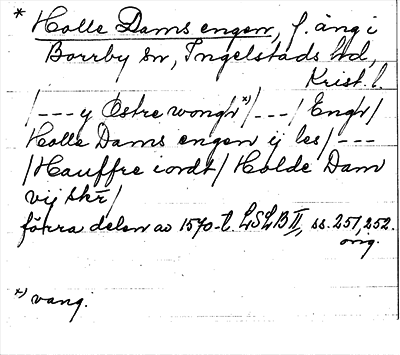 * Holle Dams engen, f. äng i
Borrby sn, Ingelstads hd,
Krist. l.
/--- y Östre wongh *)/---/ Engh/
Holle Dams engen ij les/ ---
/Hauffre iordt/ Holde Dam
vij skr/
förra delen av 1570-t. LSLB II, ss. 251, 252.
orig.
*) vang.